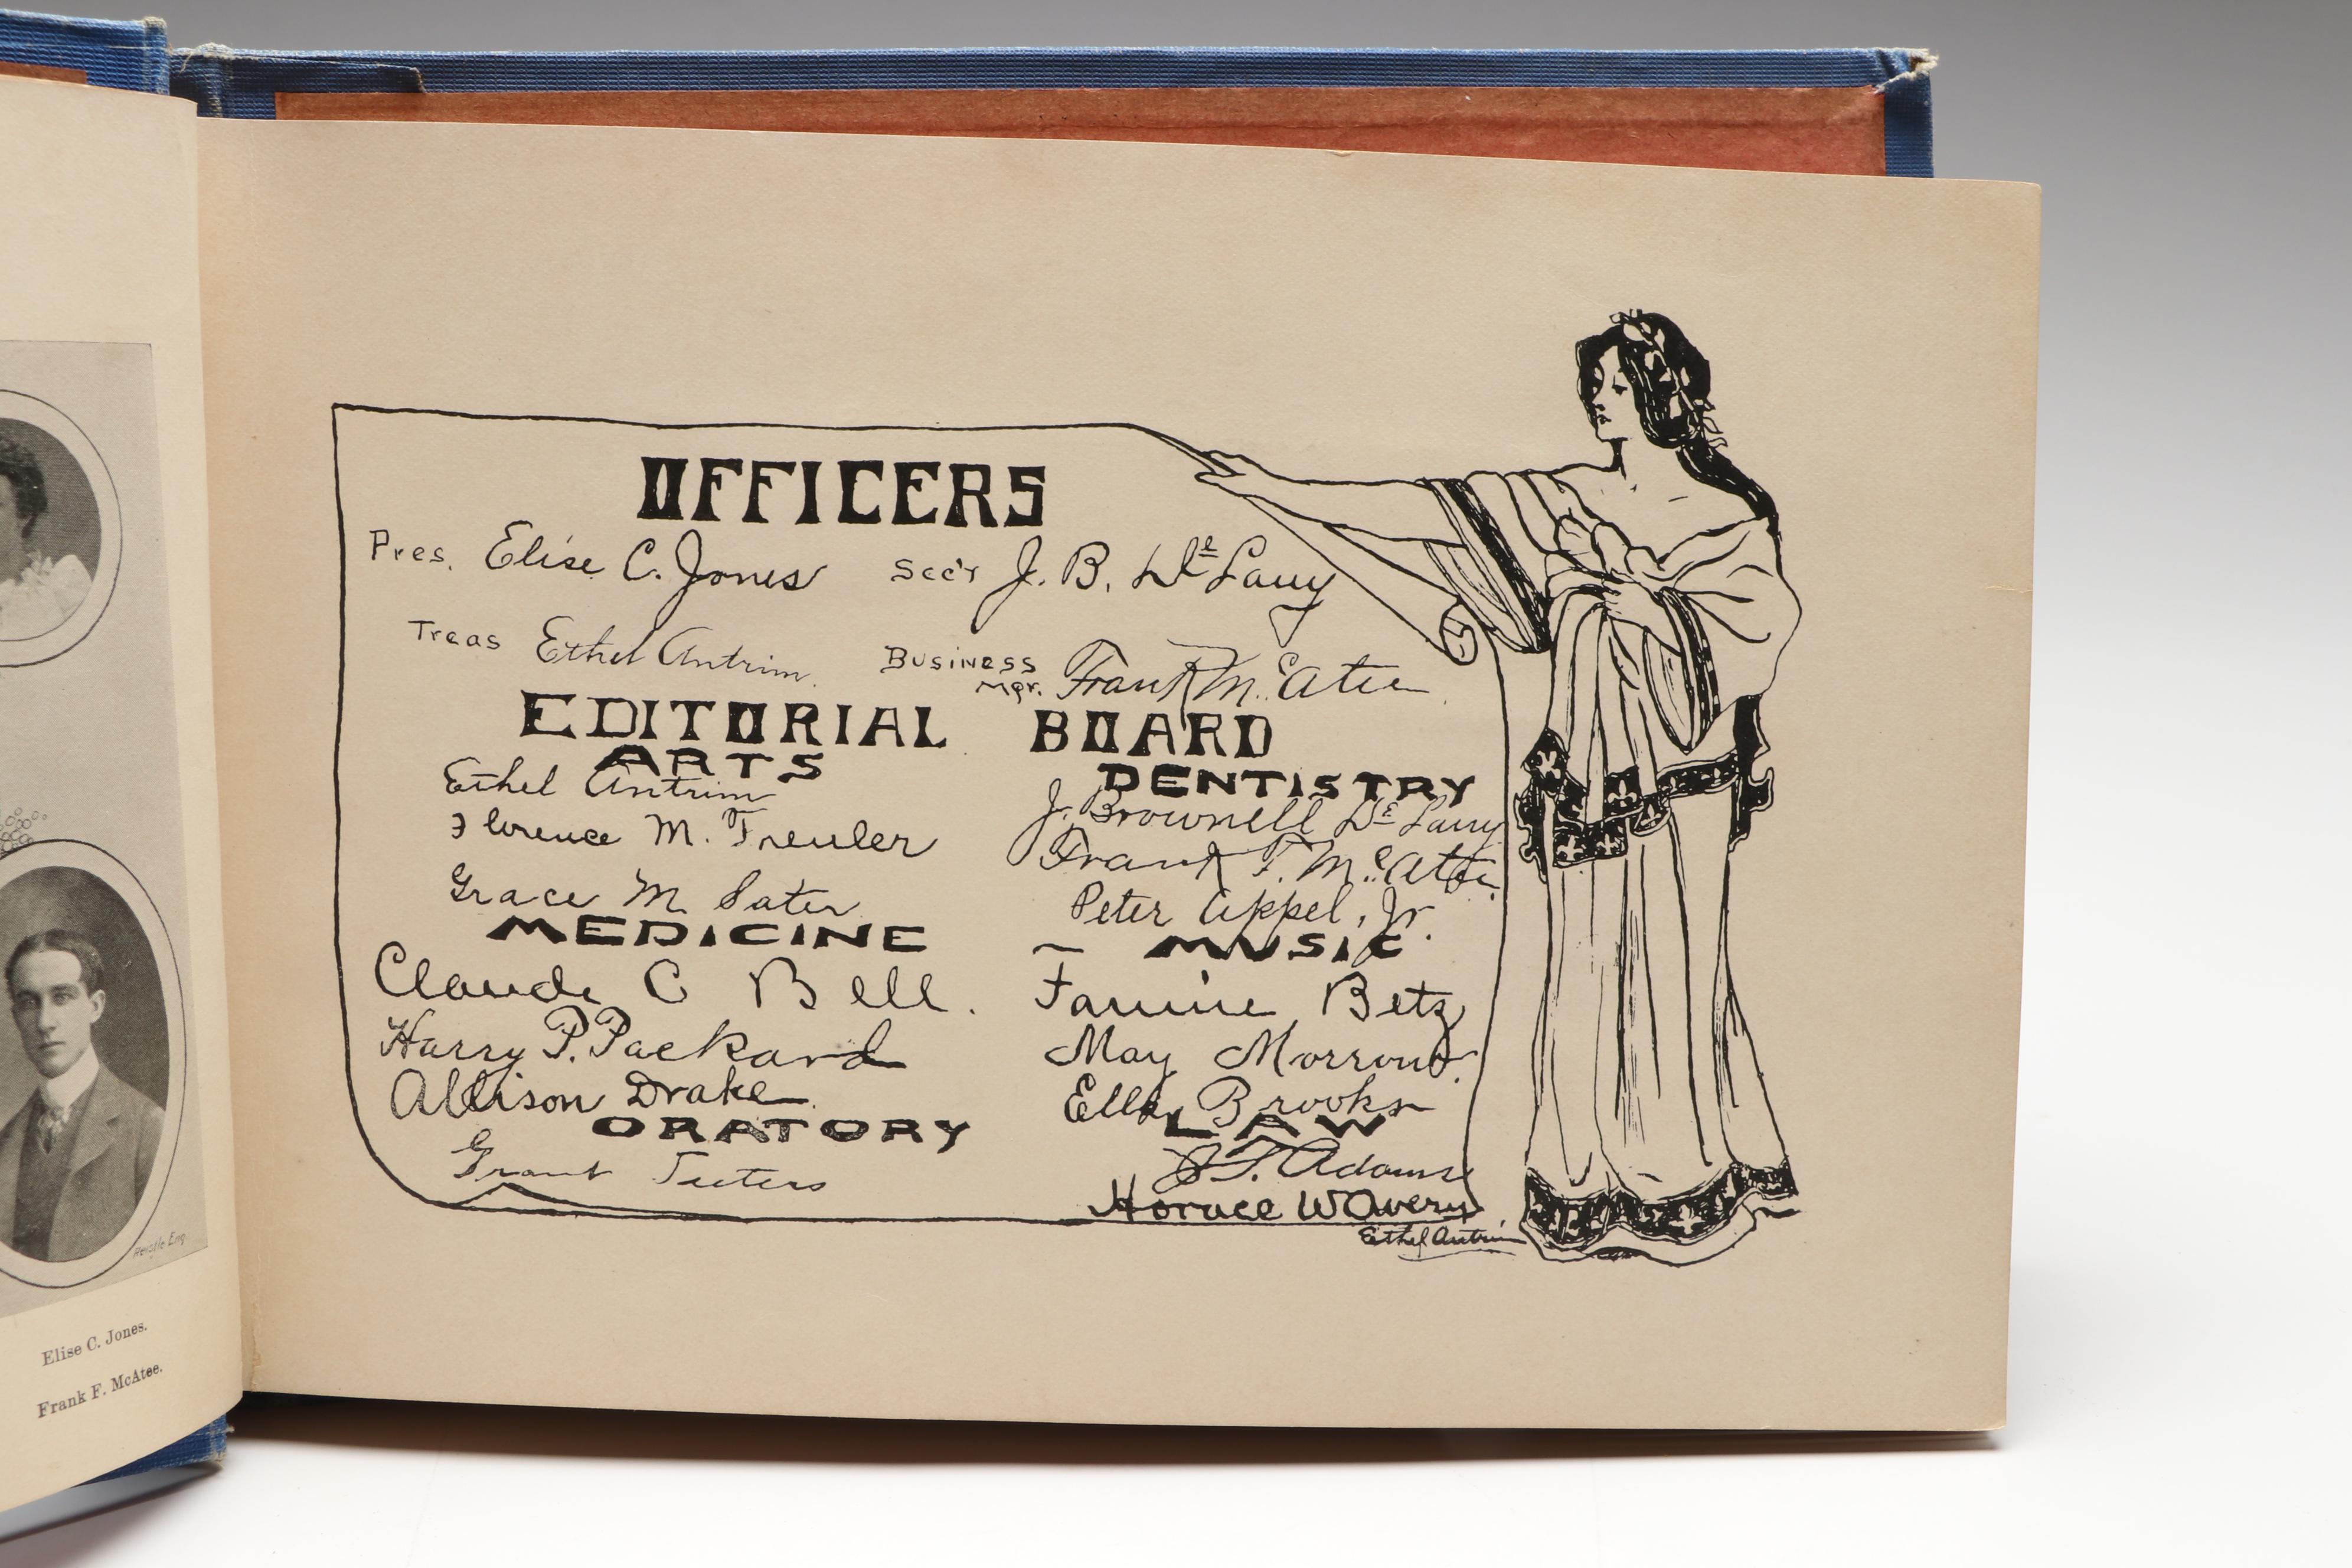 OFFICERS
Pres. Elise C. Jones Sec'y J. B. De Lany
Treas Ethel Antrim. Business Mgr. Frank McAtee
EDITORIAL BOARD
ARTS
Ethel Antrim
Florence M. Treuler
Grace M. Sater
MEDICINE
Claude C Bell.
Harry P. Packard
Allison Drake.
ORATORY
Grant Teeters
DENTISTRY
J. Brownell De Lany
Frank F. McAtee.
Peter Appel, Jr.
MUSIC
Fannie Betz
May Morrow.
Ella Brooks
LAW
J. T. Adams
Horace W Avery
Ethel Antrim
Elise C. Jones.
Frank F. McAtee.